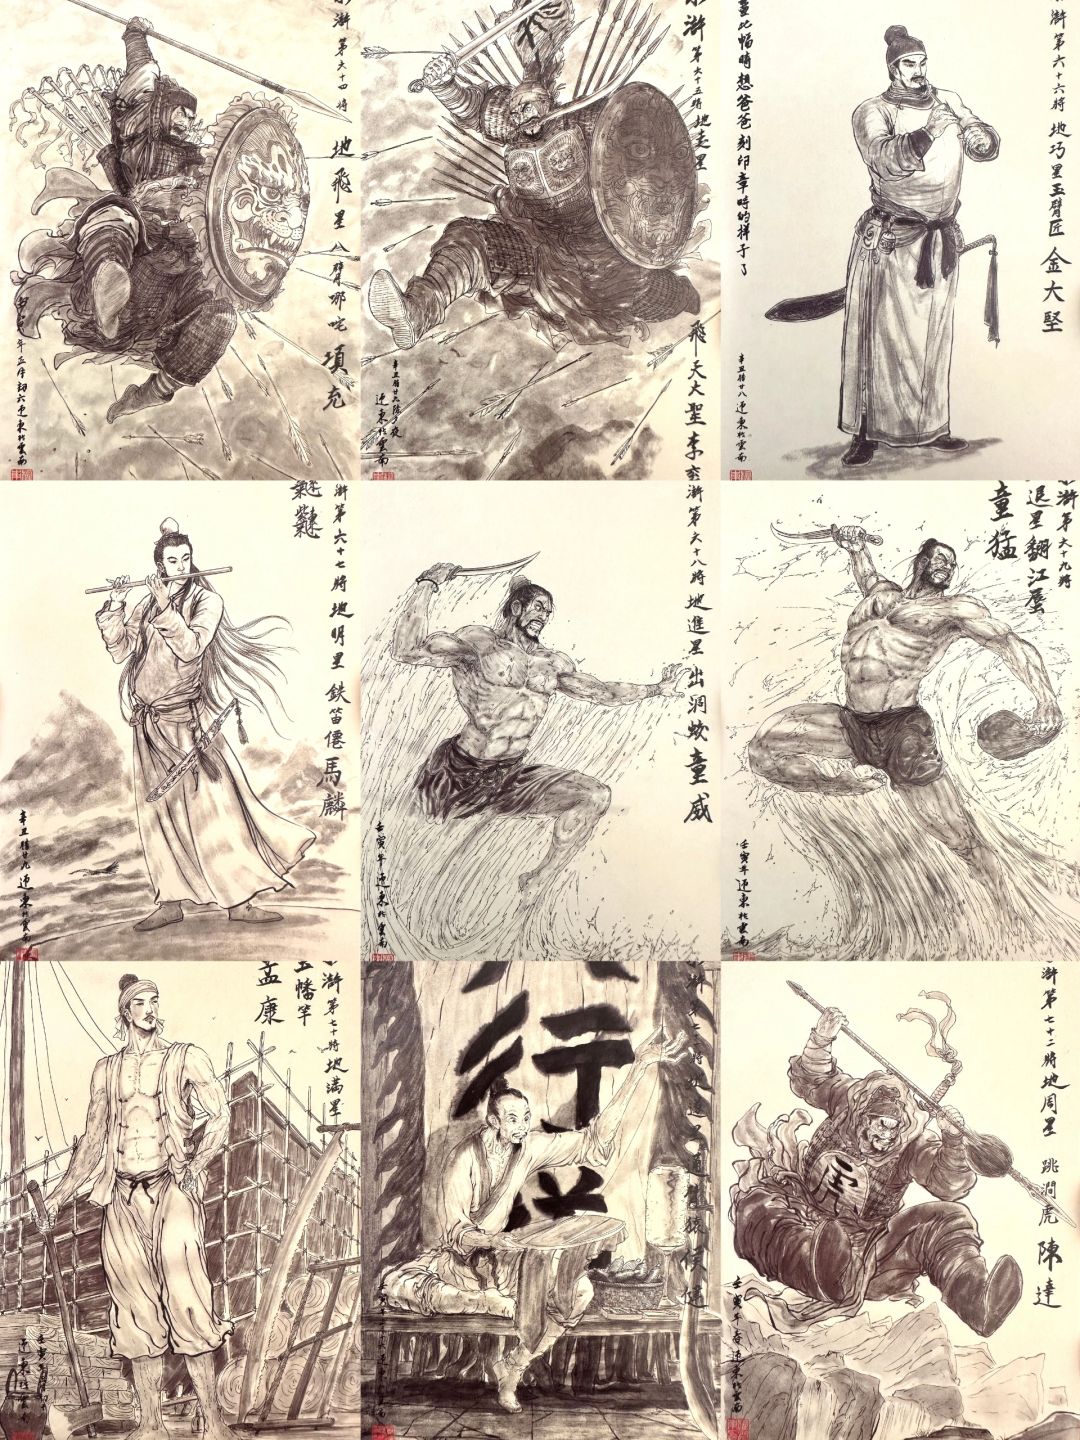 水滸第六十四将 地飛星 八臂哪吒 項充
年正月初六 延東於雲南
水滸第六十五將 地走星
飛天大聖 李袞
辛丑腊廿九除夕夜
延東於雲南
水滸第六十六將 地巧星玉臂匠 金大堅
畫此幅時想爸爸刻印章時的樣子了
辛丑腊廿八 延東於雲南
滸第六十七將 地明星 鉄笛僊 馬麟
辛丑腊廿九 延東於雲南
滸第六十八將 地進星 出洞蛟 童威
壬寅年 延東於雲南
水滸第六十九將
退星翻江蜃
童猛
壬寅年 延東於雲南
水滸第七十將 地满星
玉幡竿
孟康
延東於雲南
行
通臂猿 侯健
滸第七十二將 地周星 跳澗虎 陳達
虎
壬寅年春 延東於雲南